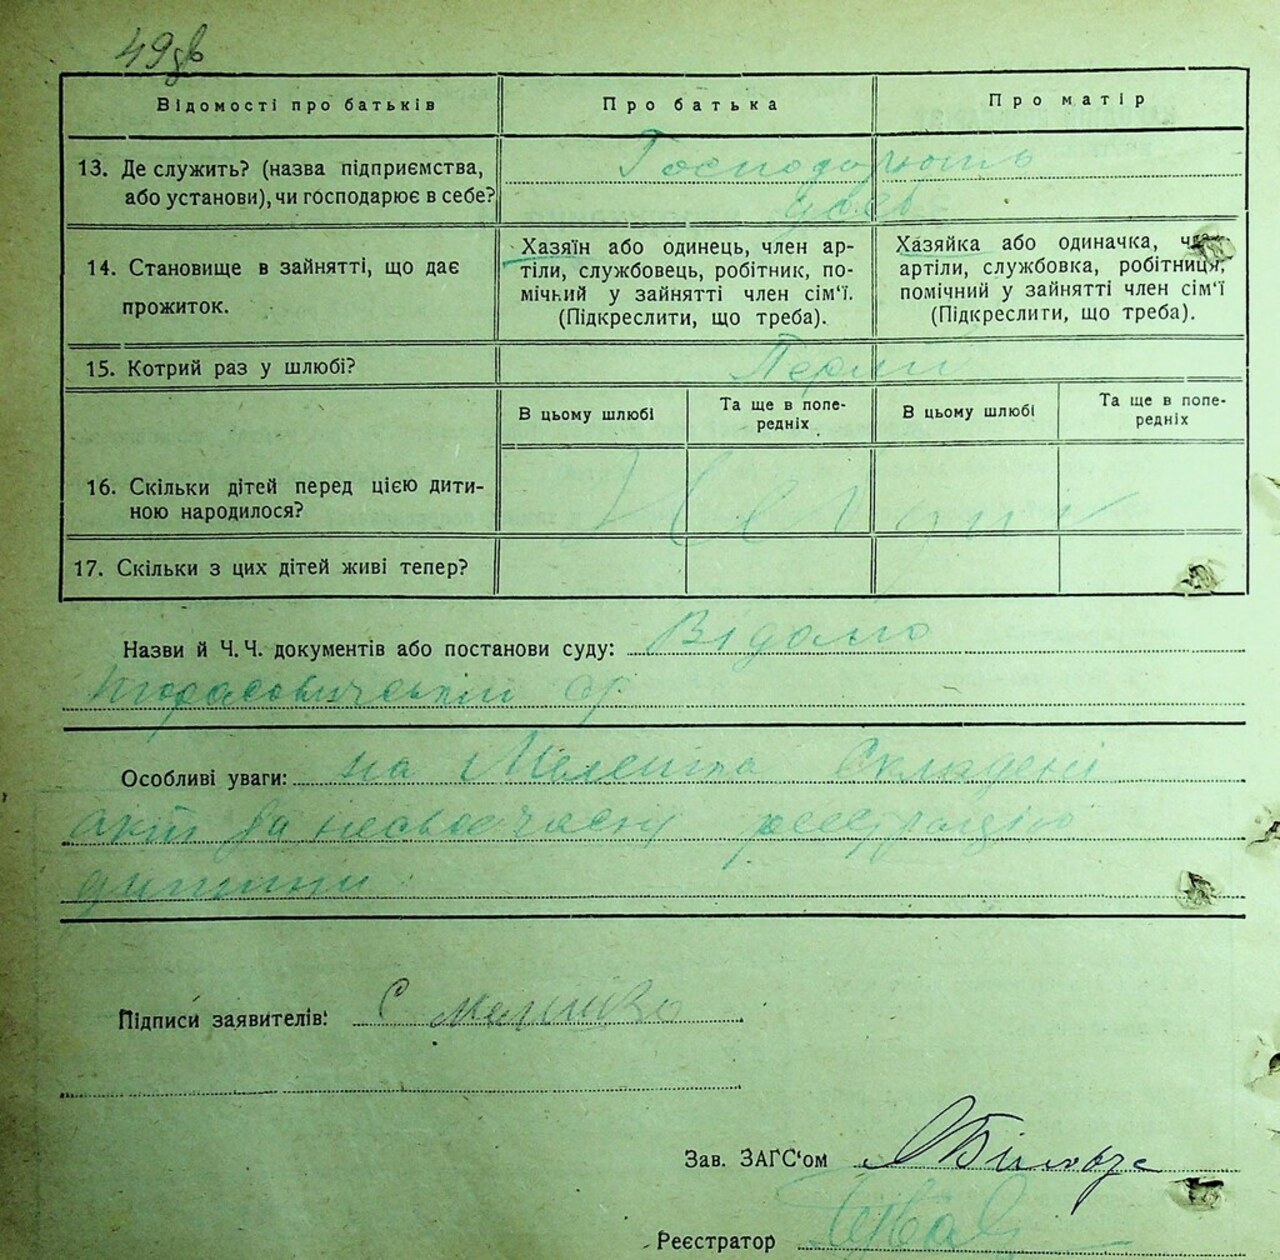 49зв
Відомості про батьків
Про батька
Про матір
13. Де служить? (назва підприємства,
або установи), чи господарює в себе?
Господарюють
у себе
14. Становище в зайнятті, що дає
прожиток.
Хазяїн або одинець, член ар-
тіли, службовець, робітник, по-
мічний у зайнятті член сім'ї.
(Підкреслити, що треба).
Хазяйка або одиначка, член
артіли, службовка, робітниця,
помічний у зайнятті член сім'ї
(Підкреслити, що треба).
15. Котрий раз у шлюбі?
Перший
В цьому шлюбі
Та ще в попе-
редніх
В цьому шлюбі
Та ще в попе-
редніх
16. Скільки дітей перед цією дити-
ною народилося?
17. Скільки з цих дітей живі тепер?
Назви й Ч. Ч. документів або постанови суду: Відомо
Особливі уваги: на складені
акт за несвоєчасну реєстрацію
дитини
Підписи заявителів: С
Зав. ЗАГС'ом
Реєстратор